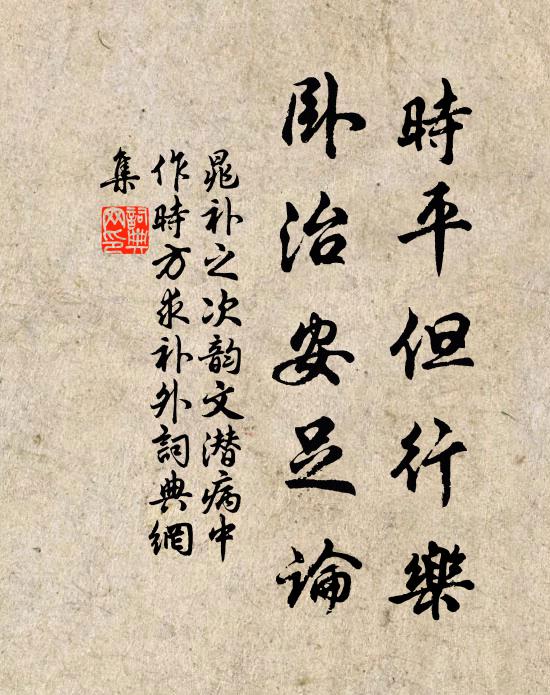 時平但行樂
臥治安足論
晁补之次韵文潜病中
作時方求补外詞典網
集
詞典
网印